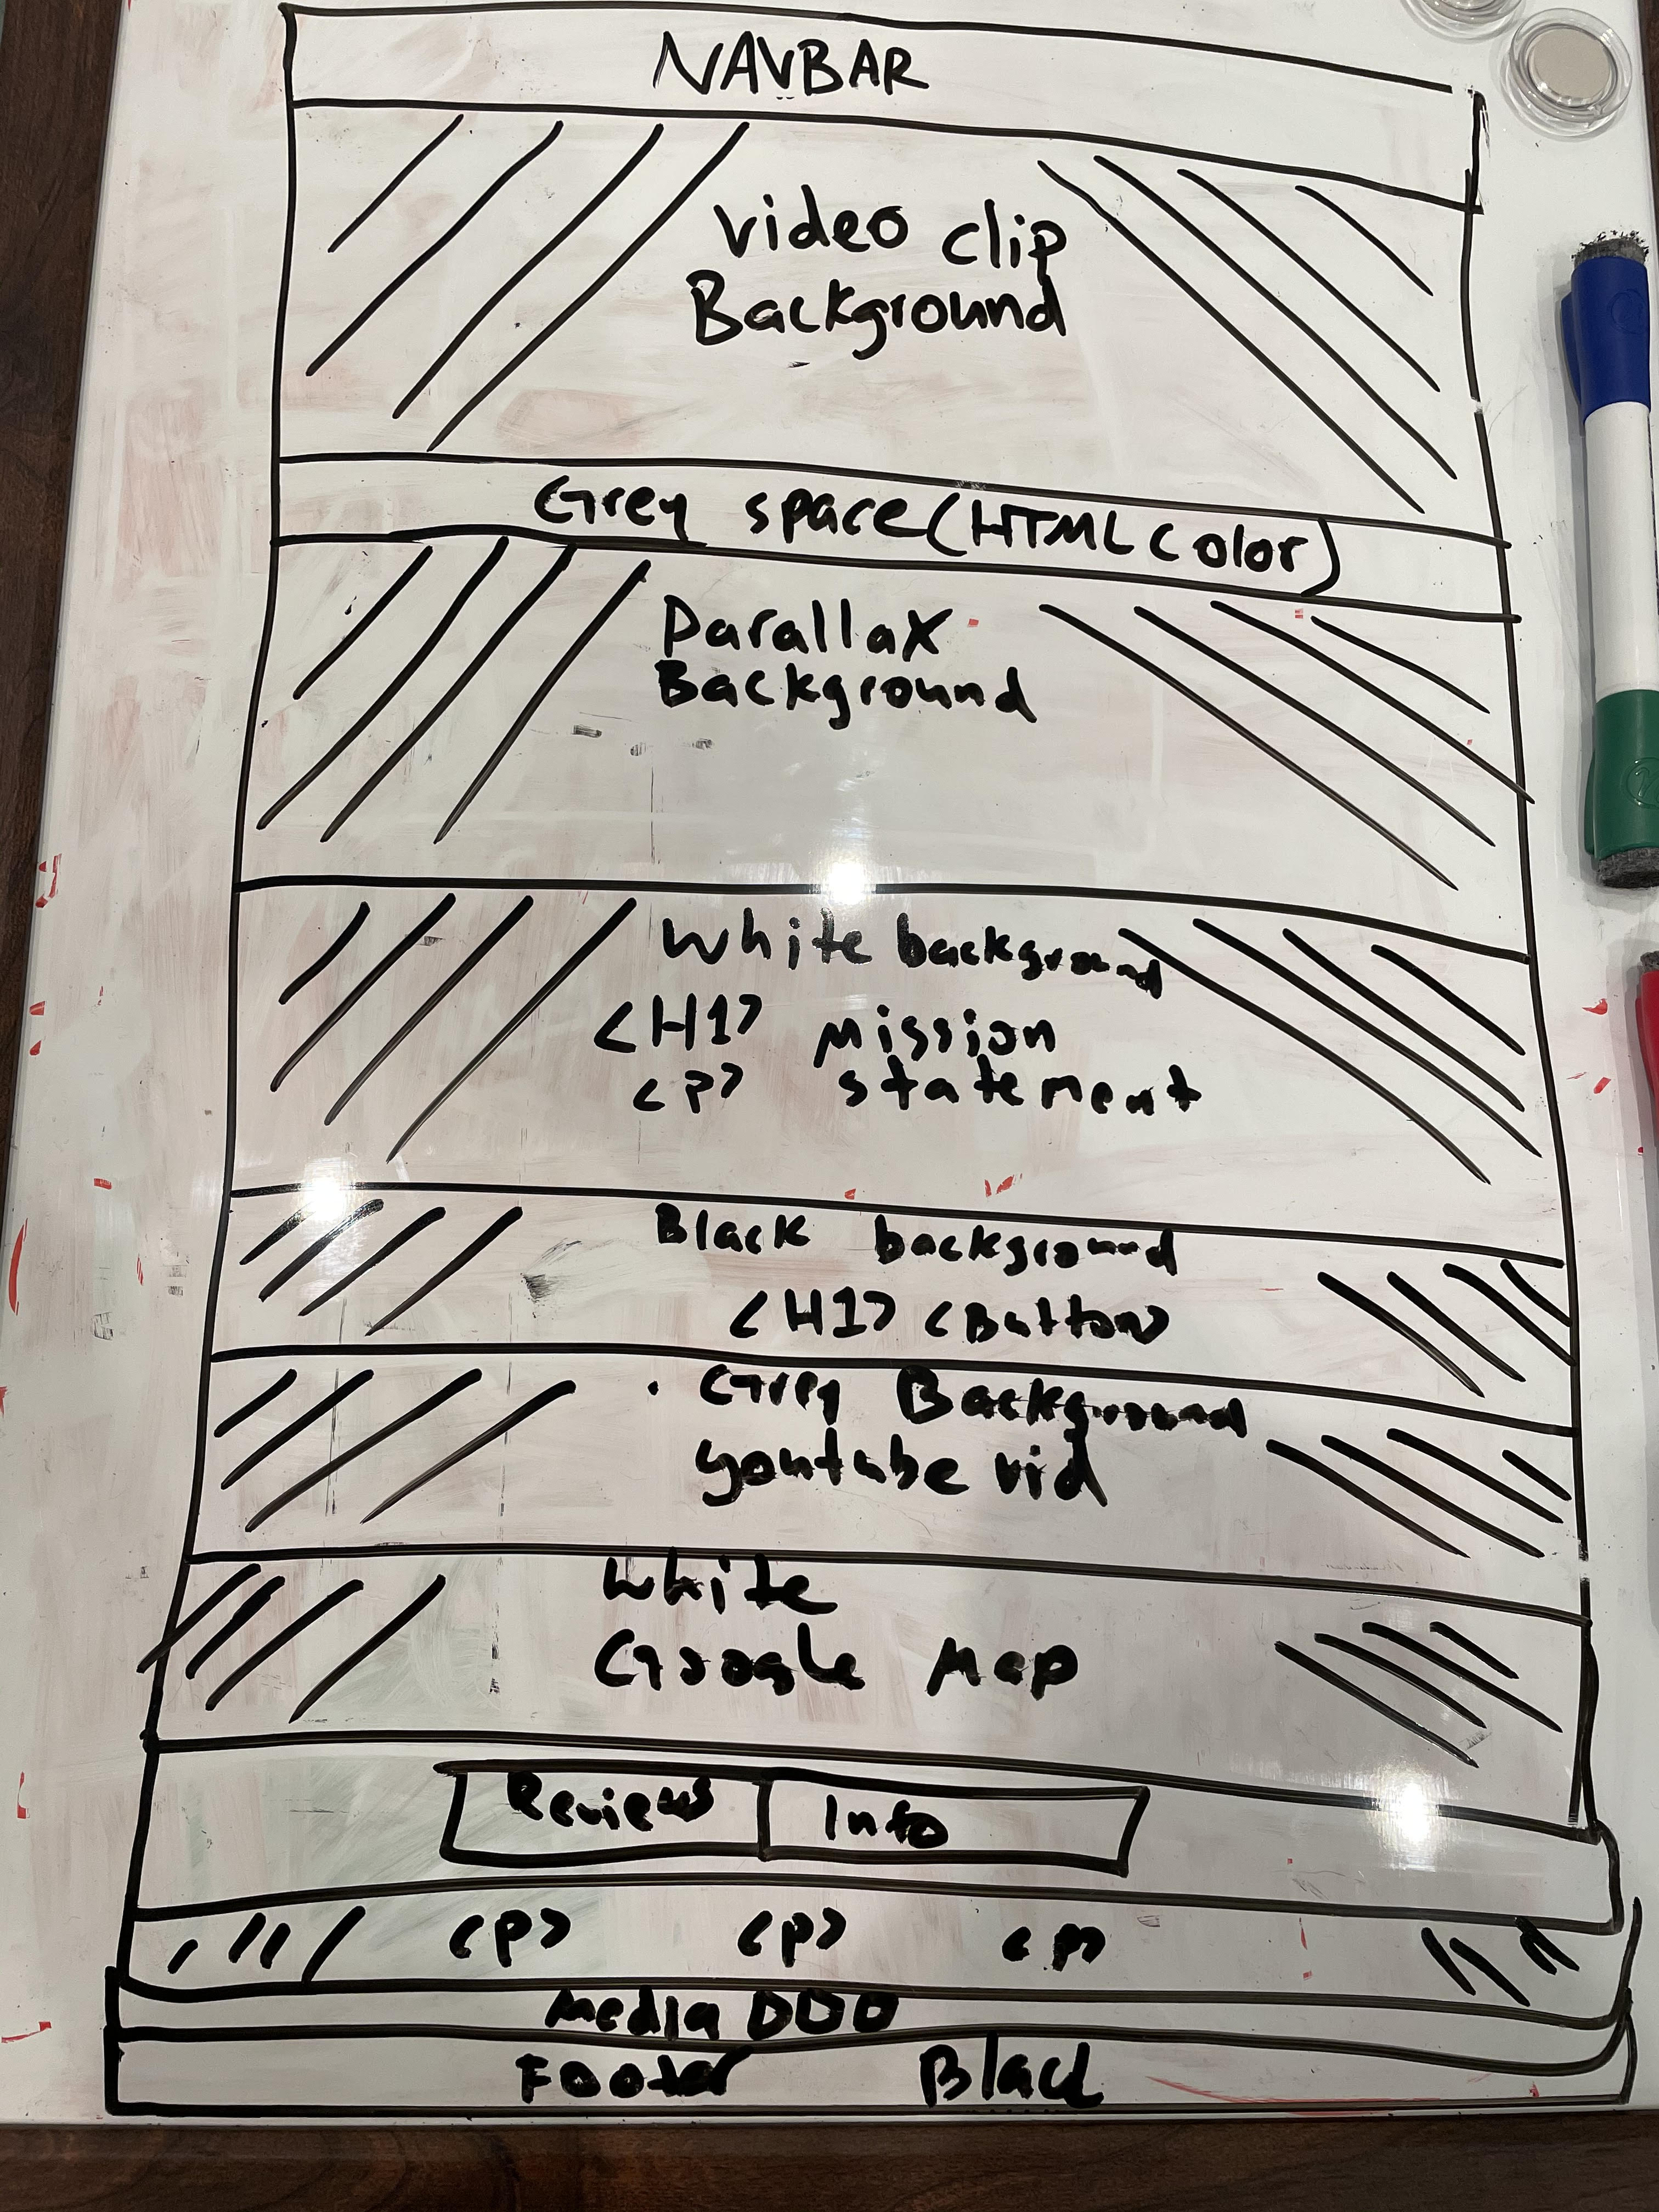 NAVBAR
video clip
Background
Grey space (HTML color)
Parallax
Background
White background
<H1> Mission
<P> statement
Black background
<H1> <Button>
Grey Background
youtube vid
White
Google Map
Reviews Info
<p> <p> <p>
Media
Footer Black